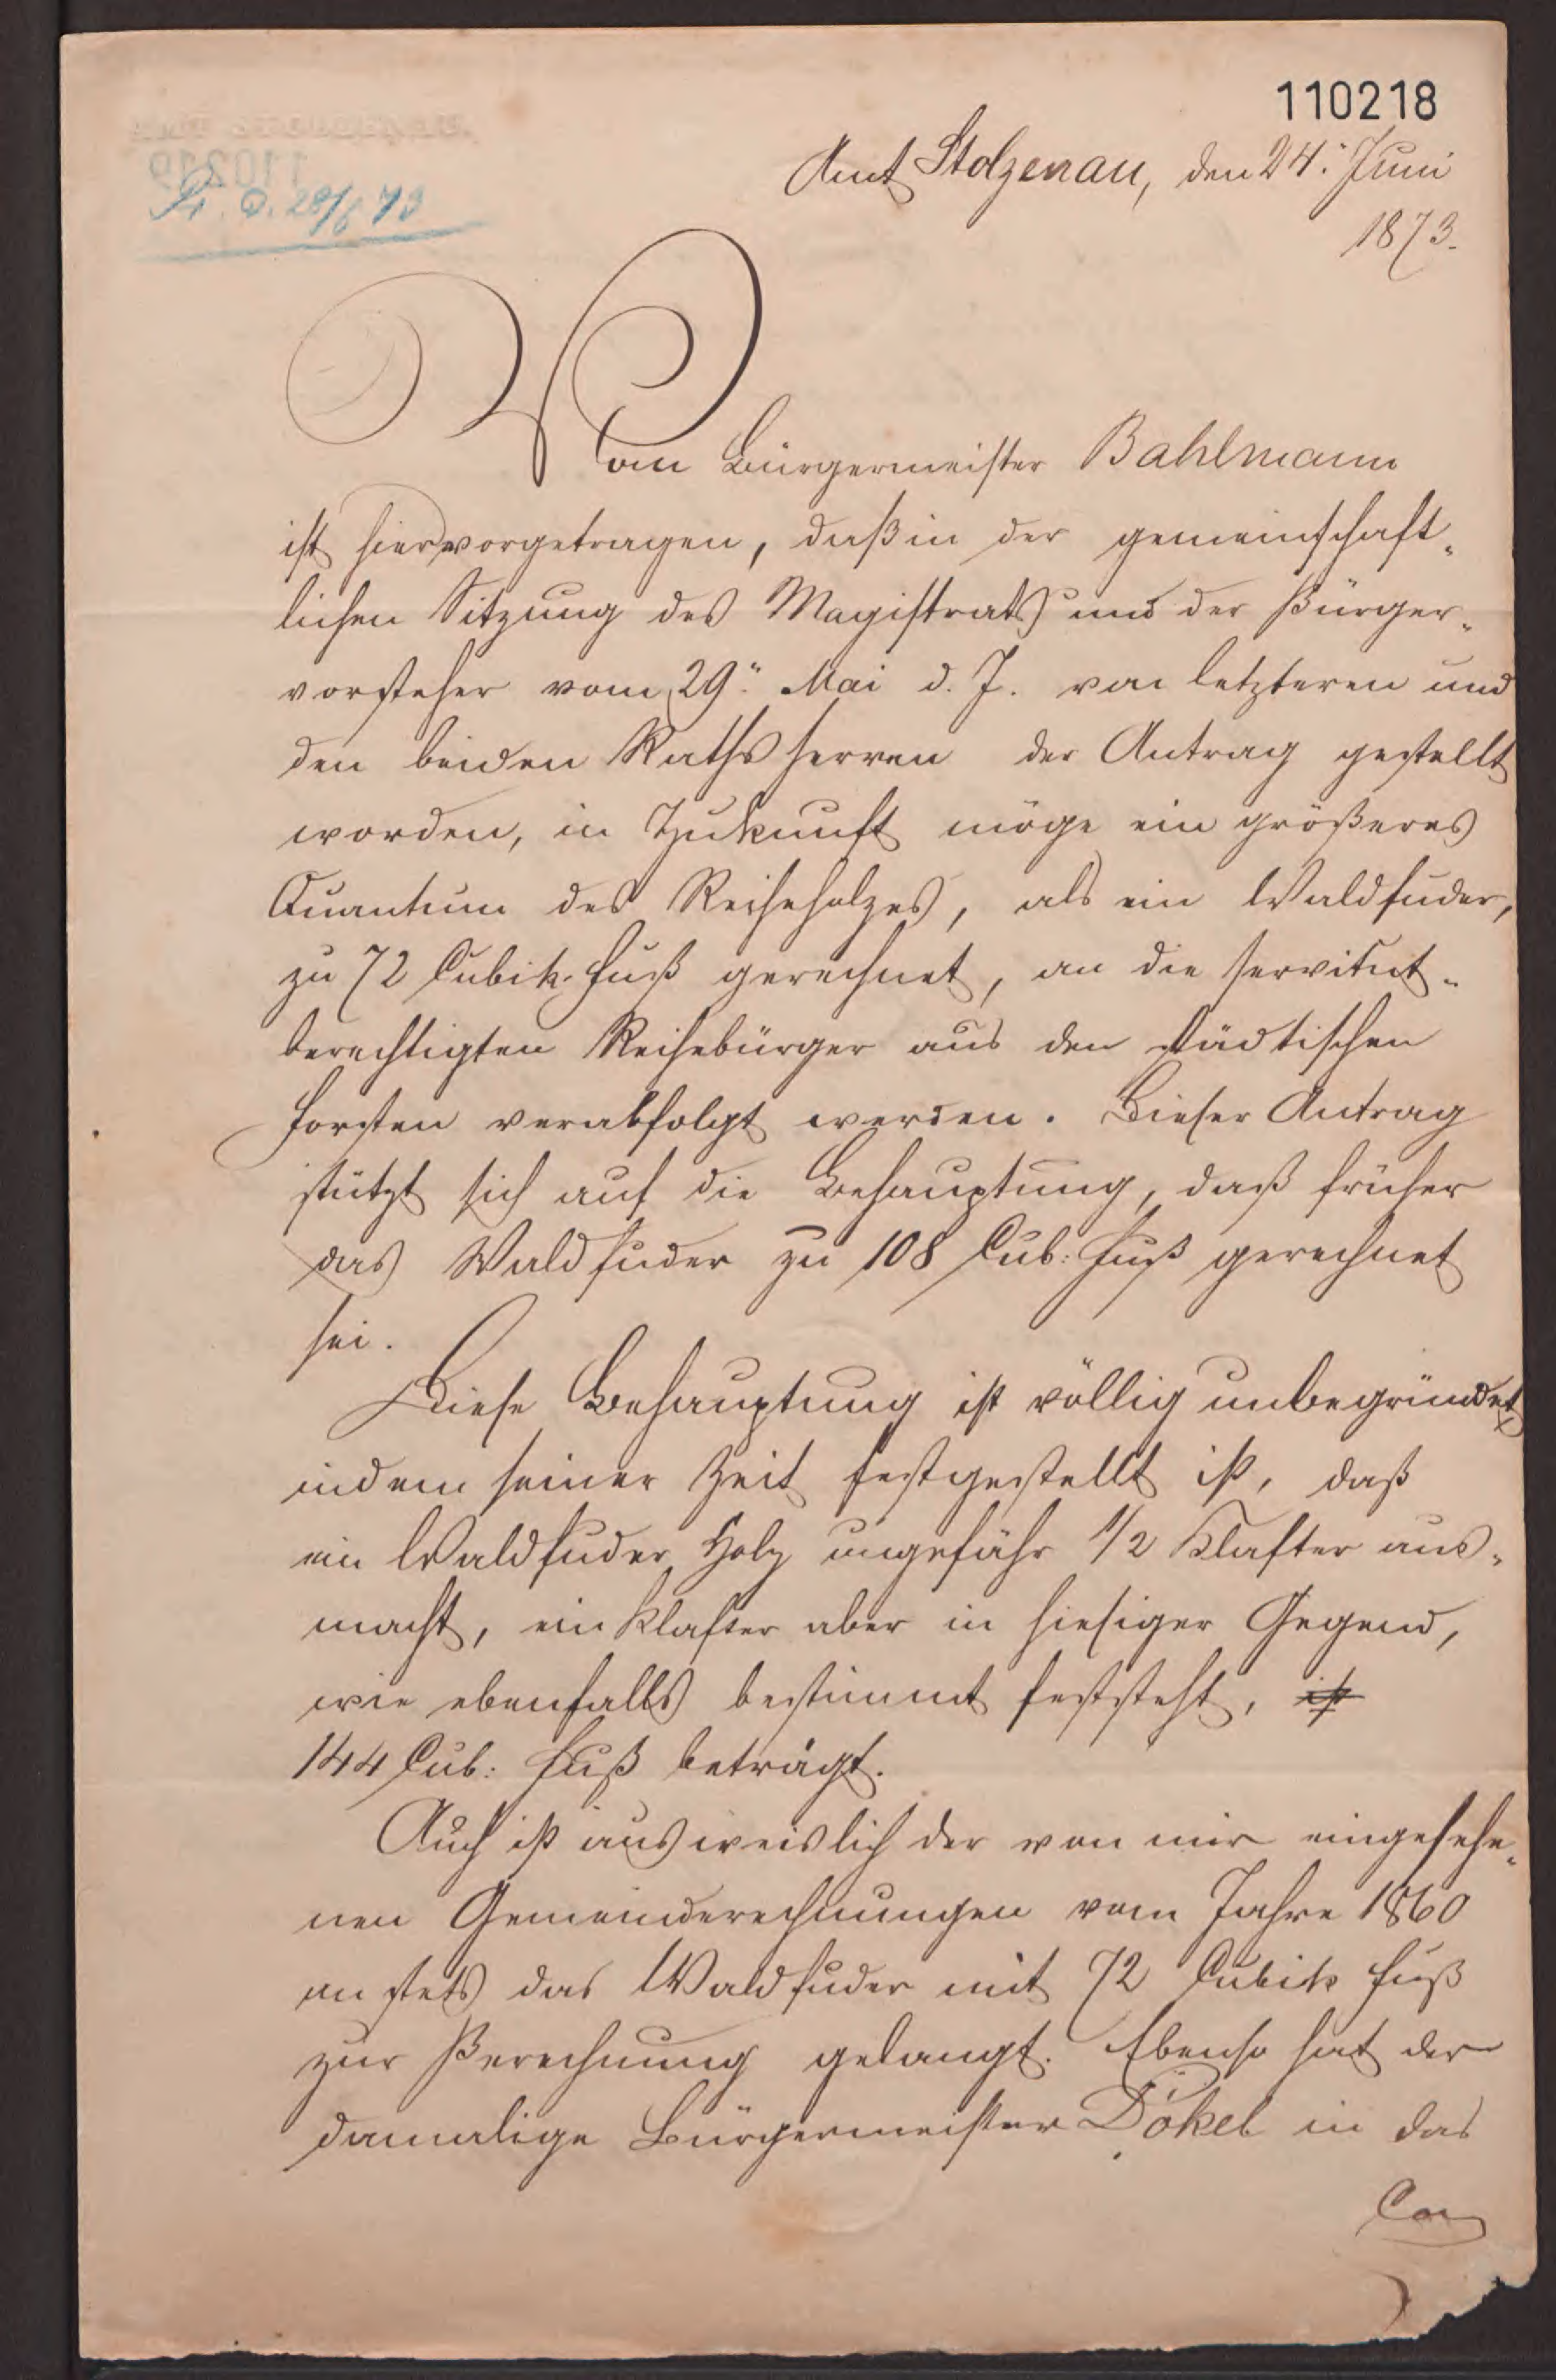 110218
Amt Stolzenau, den 24. Juni
1873.
Pr. O. 28/6 73
Vom Bürgermeister Bahlmann
ist hier vorgetragen, daß in der gemeinschaft-
lichen Sitzung des Magistrats und der Bürger-
vorsteher vom 29. Mai d. J. von letzteren und
den beiden Rathsherren der Antrag gestellt
worden, in Zukunft möge ein größeres
Quantum des Reiheholzes, als ein Waldfuder,
zu 72 Cubik-Fuß gerechnet, an die servitut-
berechtigten Reihebürger aus den städtischen
Forsten verabfolgt werden. Dieser Antrag
stützt sich auf die Behauptung, daß früher
das Waldfuder zu 108 Cub: Fuß gerechnet
sei.
Diese Behauptung ist völlig unbegründet,
indem seiner Zeit festgestellt ist, daß
ein Waldfuder Holz ungefähr 1/2 Klafter aus-
macht, ein Klafter aber in hiesiger Gegend,
wie ebenfalls bestimmt feststeht, ist
144 Cub: Fuß beträgt.
Auch ist ausweislich der von mir eingesehe-
nen Gemeinderechnungen vom Jahre 1860
an stets das Waldfuder mit 72 Cubik Fuß
zur Berechnung gelangt. Ebenso hat der
damalige Bürgermeister Dökel in das
Con